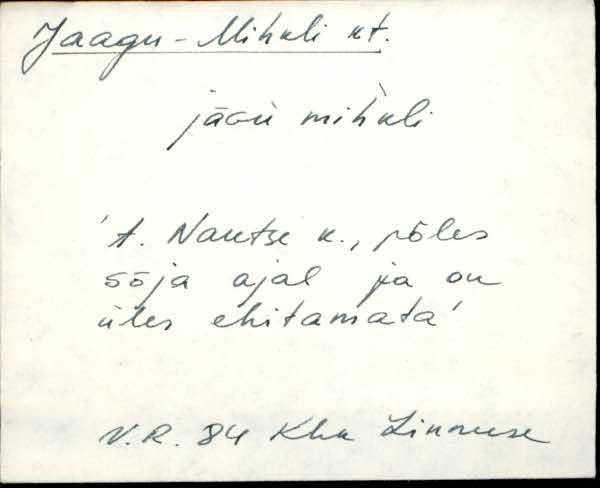 Jaagu-Mihkli kt.
jāGù mìhkli
't. Nautse k., põles
sõja ajal ja on
üles ehitamata'
V.R. 84 Khk Linnuse